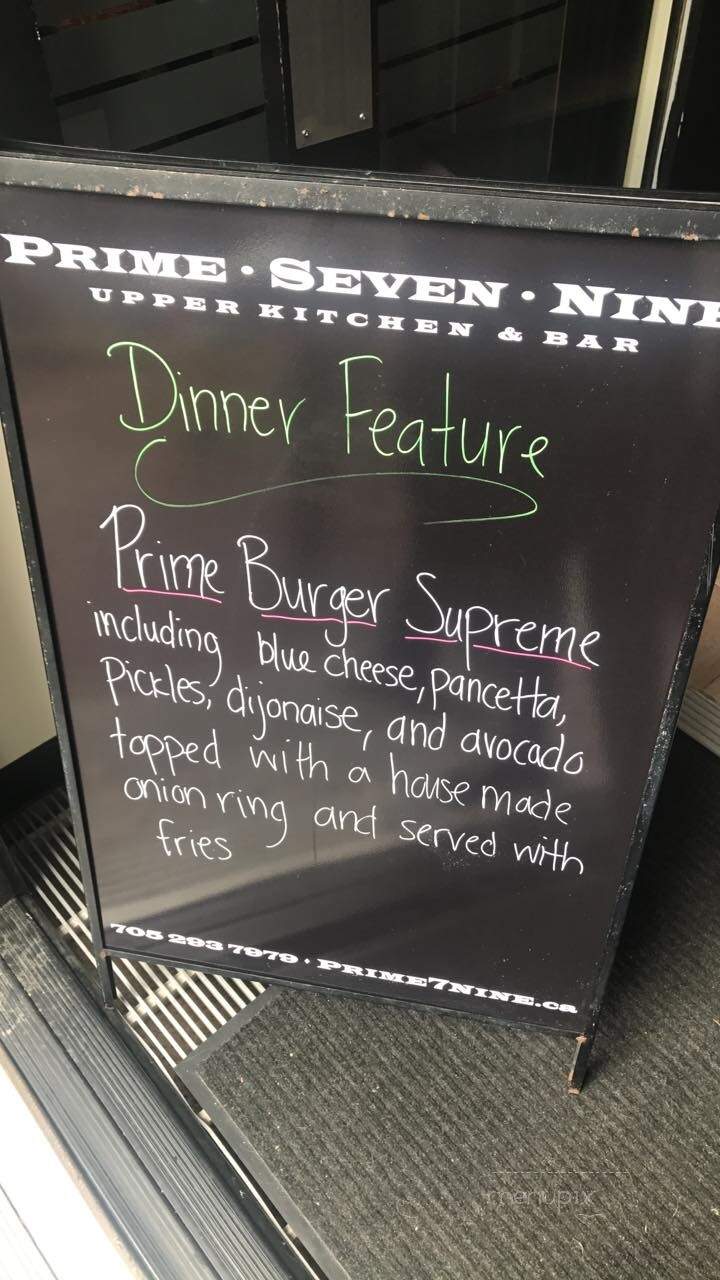 PRIME • SEVEN • NINE
UPPER KITCHEN & BAR
Dinner Feature
Prime Burger Supreme
including blue cheese, pancetta,
Pickles, dijonaise, and avocado
topped with a house made
onion ring and served with
fries
705 293 7979 • PRIME7NINE.ca
menupix